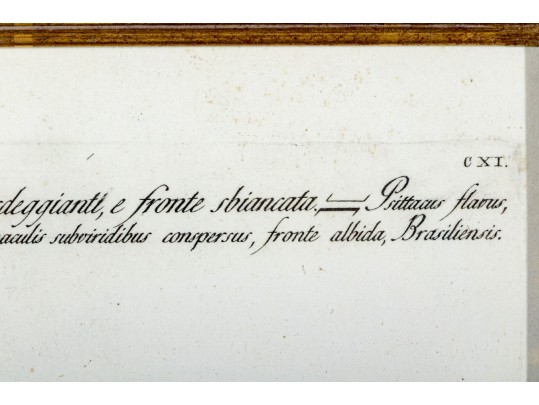 CXI.
deggianti, e fronte sbiancata. Psittacus flavus,
maculis subviridibus conspersus, fronte albida, Brasiliensis.